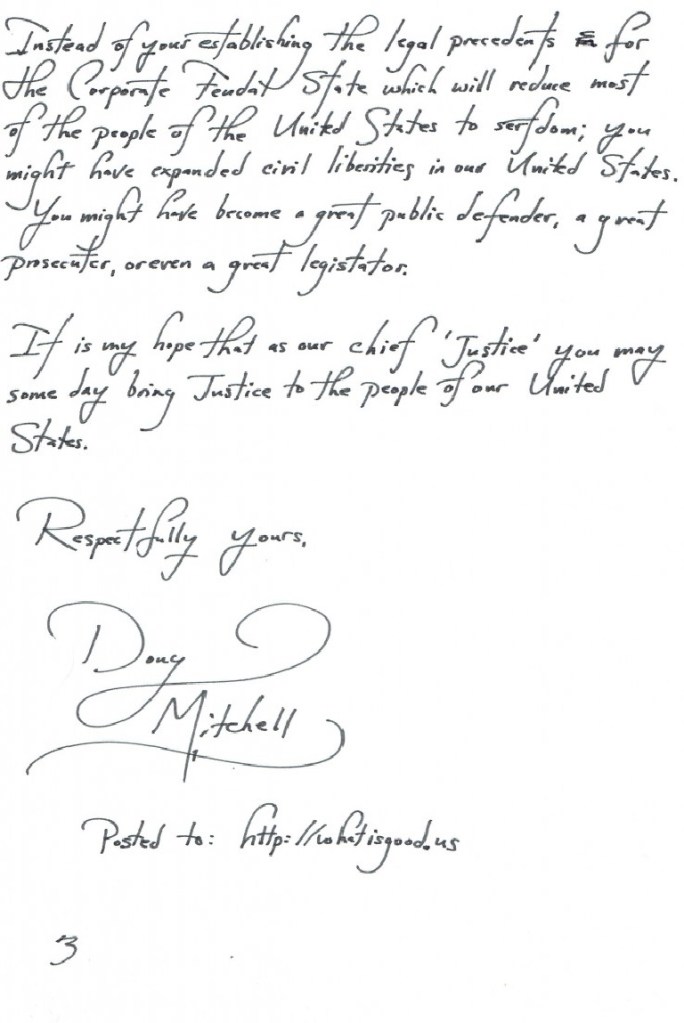 Instead of your establishing the legal precedents for
the Corporate Feudal State which will reduce most
of the people of the United States to serfdom; you
might have expanded civil liberities in our United States.
You might have become a great public defender, a great
prosecuter, or even a great legistator.
It is my hope that as our chief 'Justice' you may
some day bring Justice to the people of our United
States.
Respectfully yours,
Doug
Mitchell
Posted to: http://whatisgood.us
3